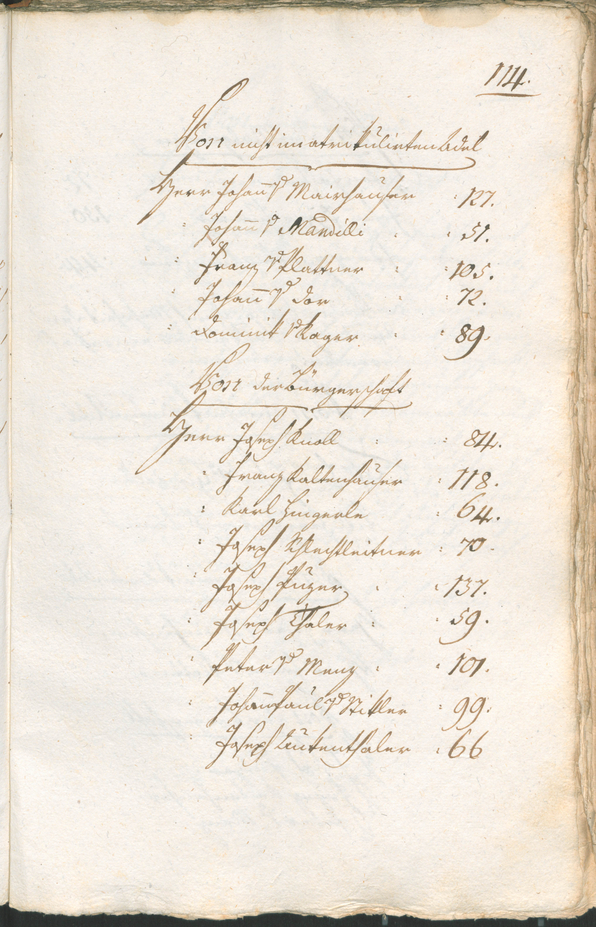 114.
Von nicht immatrikulirten Adel
Herr Johann v Mairhauser : 127.
: Johann v Mandilli : : 51.
: Franz v Plattner : : 105.
: Johann v Dor : 72.
: Dominik v Kager : : 89.
Von der Bürgerschaft
Herr Joseph Knoll : : 84.
: Franz Kaltenhauser : 118.
: Karl Hingerle : 64.
: Joseph Schlechtleitner : 70.
: Joseph Puzer : : 137.
: Joseph Thaler : : 59.
: Peter v Menz : : 101.
: Johann Paul v Stikler : 99.
: Joseph Lautenthaler : 66